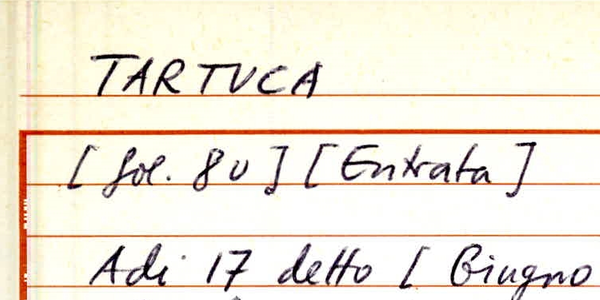 TARTUCA
[ fol. 8v ] [ Entrata ]
Adi 17 detto [ Giugno